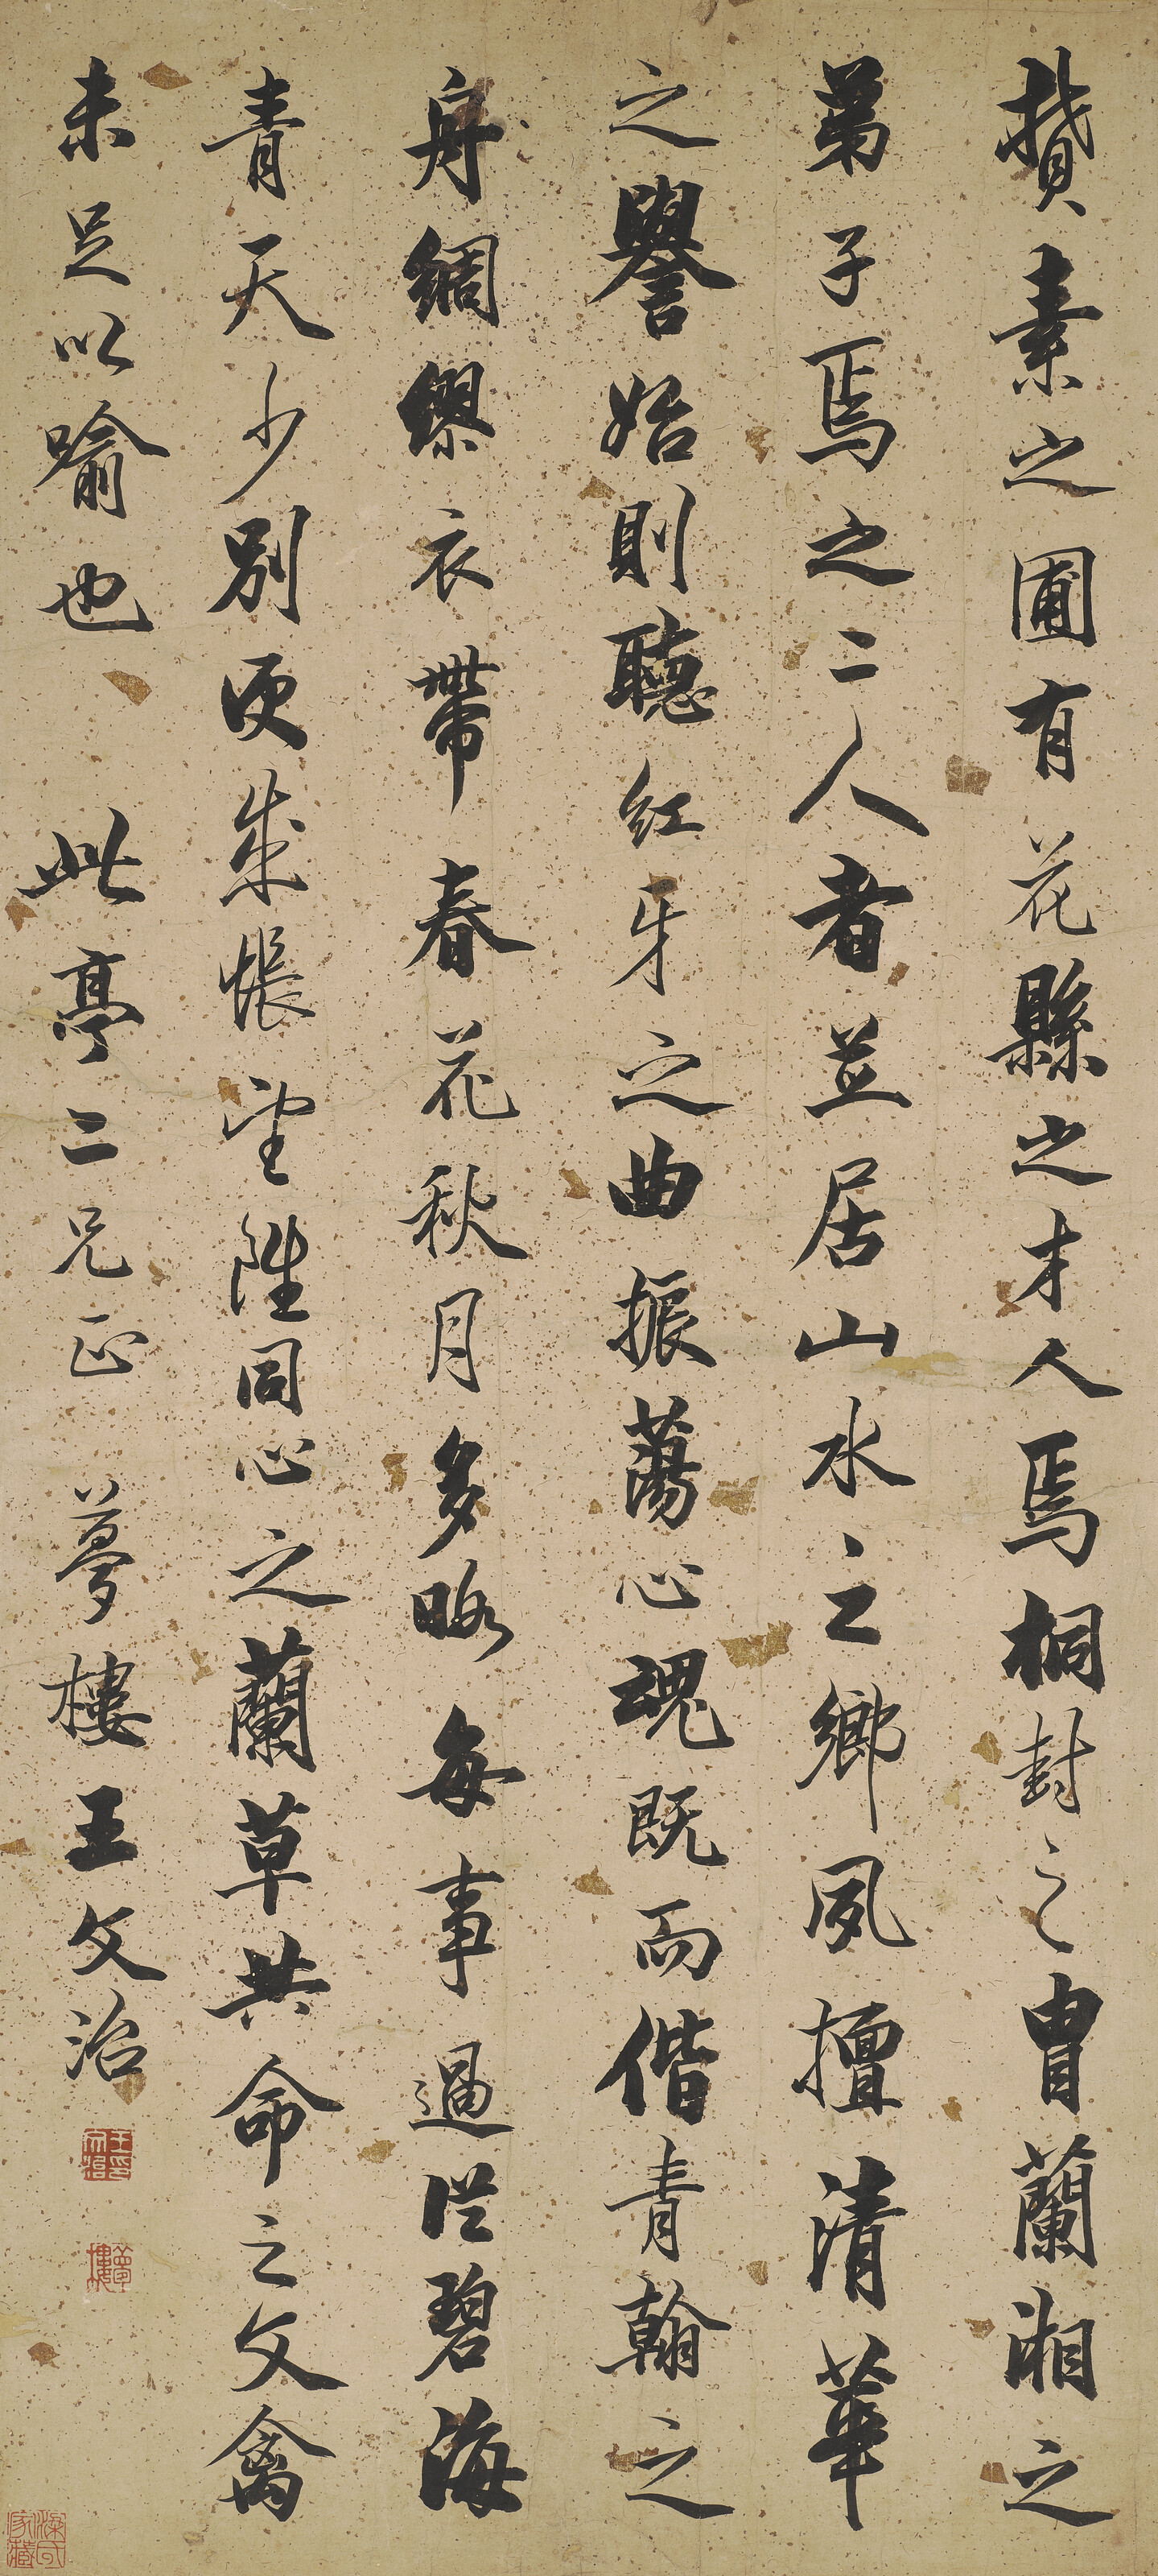 積素之圃有花縣之才人焉桐封之胄蘭湘之
弟子焉之二人者並居山水之鄉夙擅清華
之譽始則聽紅牙之曲振蕩心魂既而偕青翰之
舟綢繆衣帶春花秋月多略每事過從碧海
青天少別便成悵望雖同心之蘭草共命之文禽
未足以喻也
此亭二兄正 夢樓王文治
王文治印
夢樓